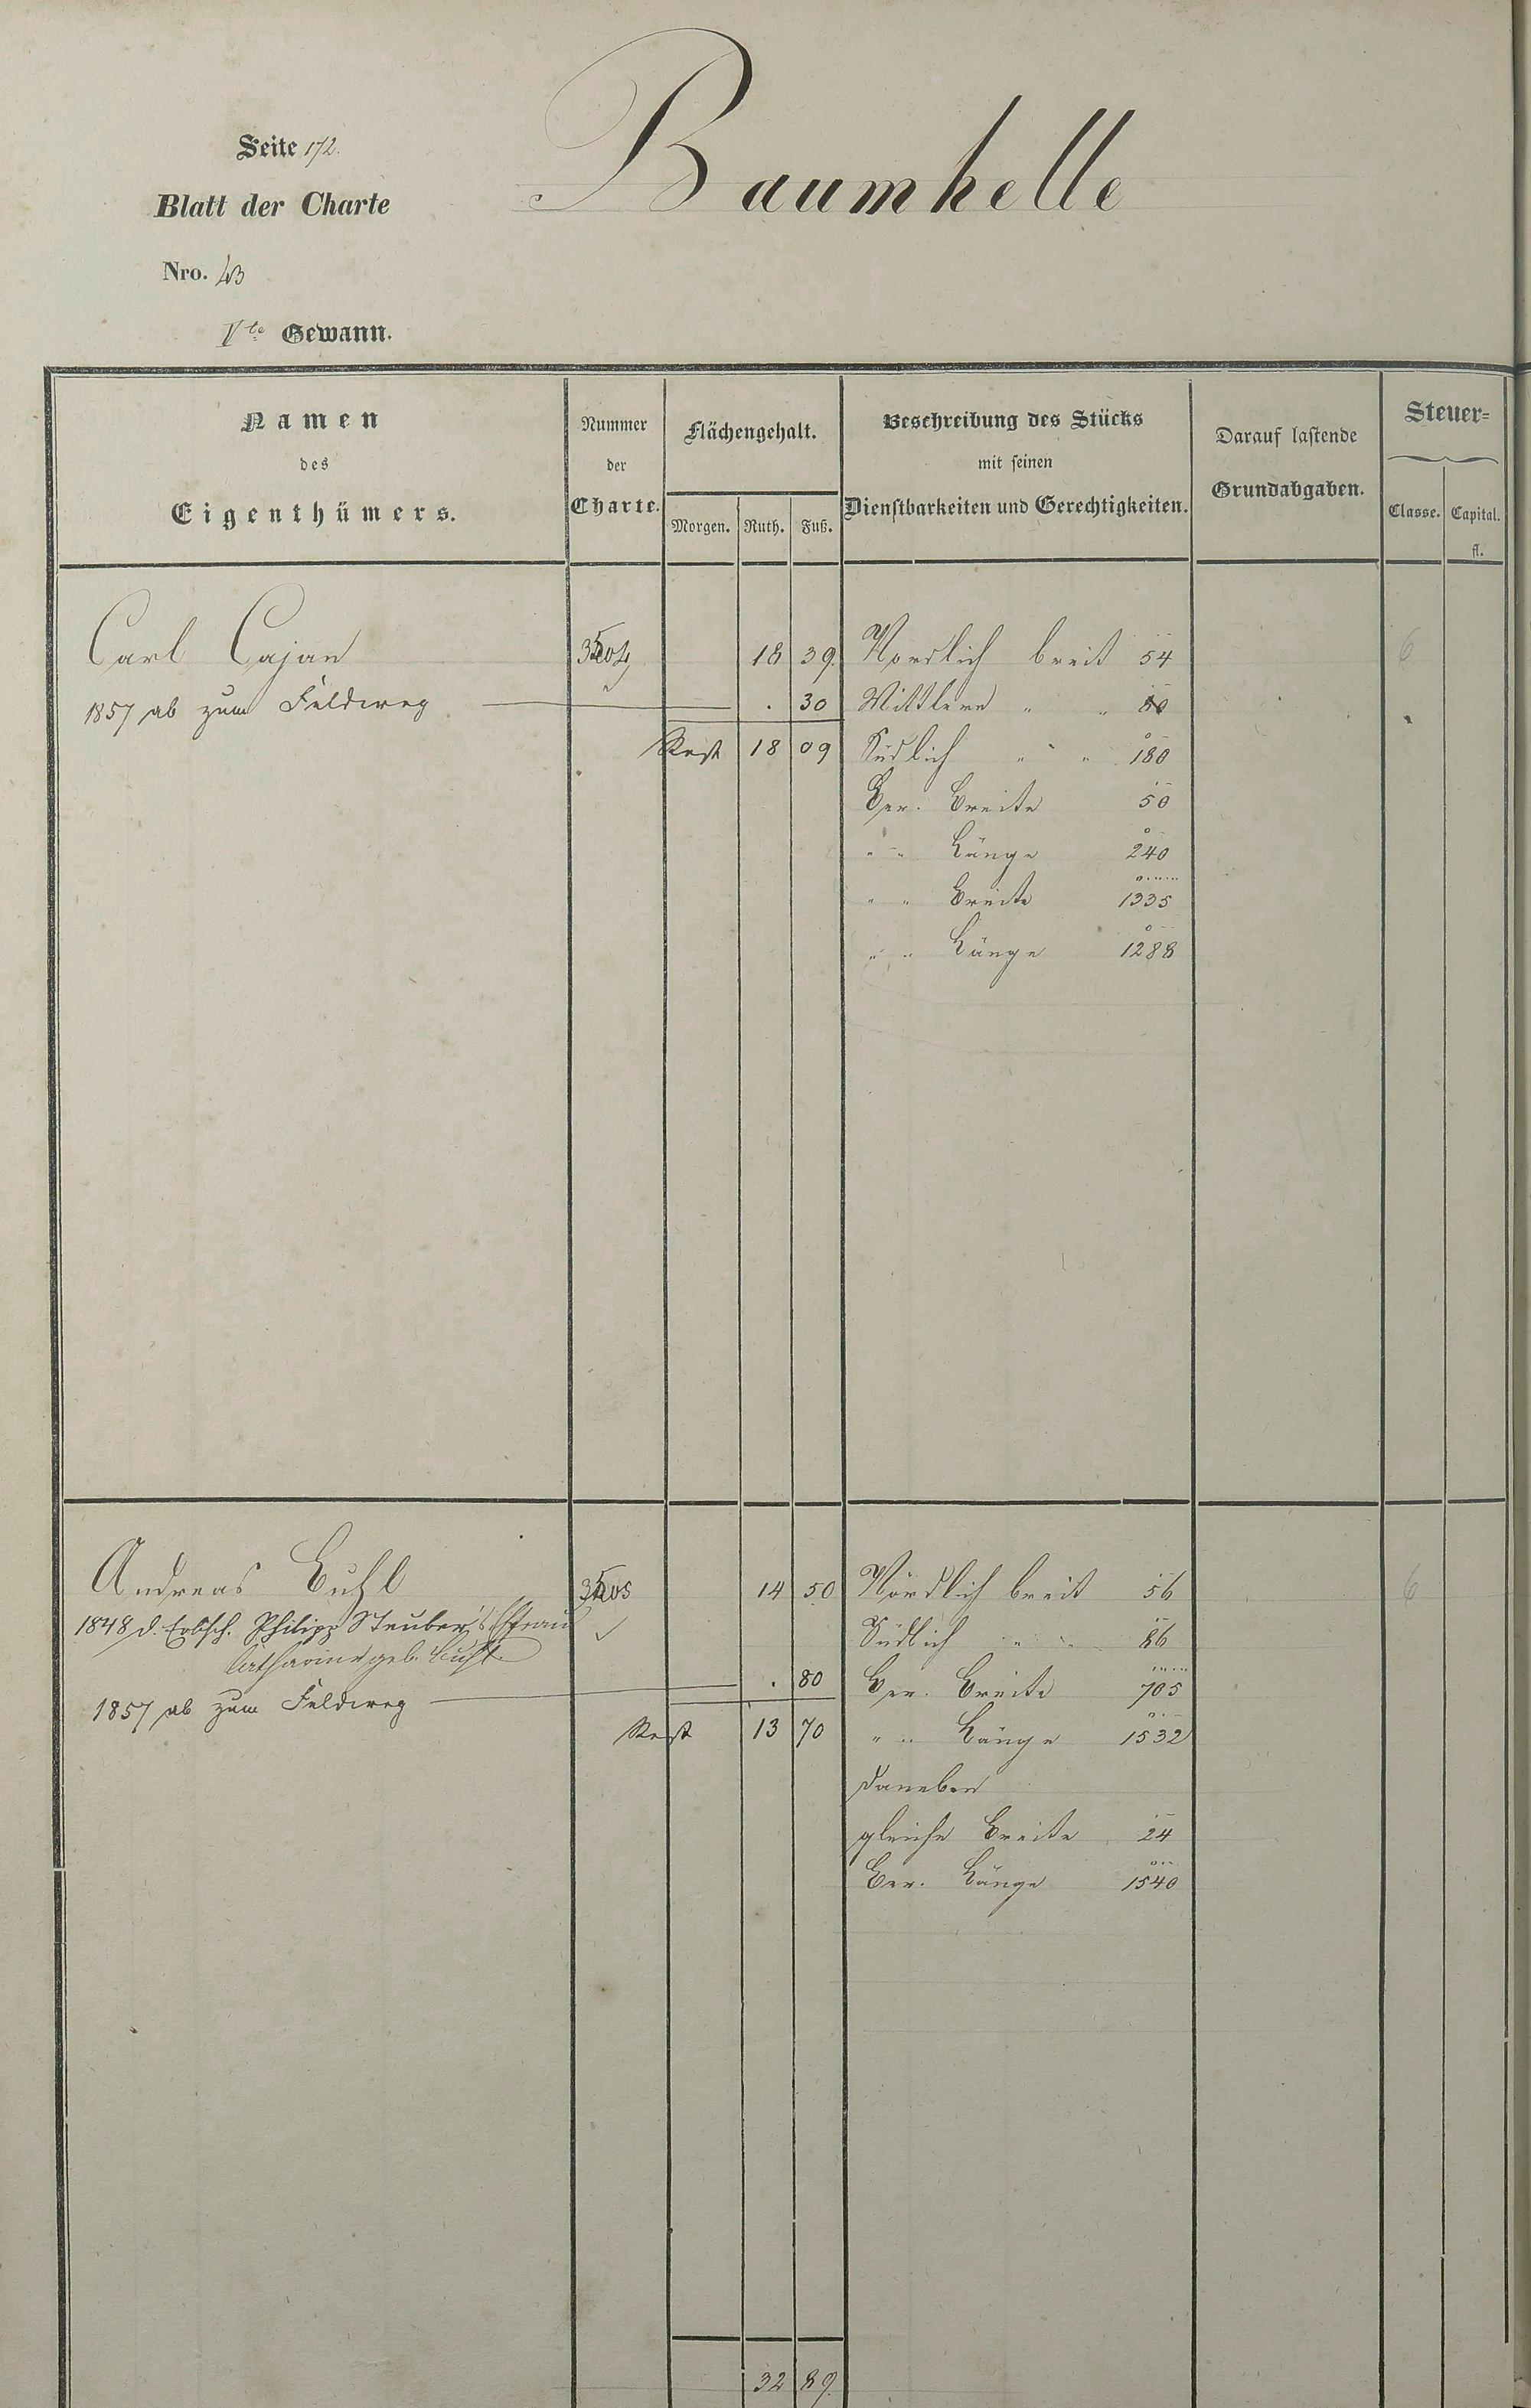 Baumhelle
Seite 172.
Blatt der Charte
Nro. 43
Vte Gewann.
Namen
des
Eigenthümers.
Nummer
der
Charte.
Flächengehalt.
Morgen. Ruth. Fuß.
Beschreibung des Stücks
mit seinen
Dienstbarkeiten und Gerechtigkeiten.
Darauf lastende
Grundabgaben.
Steuer-
Classe. Capital.
fl.
Carl Cajan 3504 18 39. Nordlich breit 54 6
1857 ab zum Feldweg . 30 Mittlere " " 80
Rest 18 09 Südlich " " 180
Ger. Breite 50
" " Länge 240
" " Breite 1335
" " Länge 1288
Andreas Buhl 3505 14 50 Nördlich breit 56 6
1848 d. Erbsch. Philipp Steuber's Ehfrau Südlich " " 86
Catharine geb.
1857 ab zum Feldweg . 80 Ger. Breite 705
Rest 13 70 " " Länge 1532
Daneben
gleiche Breite 24
Ger. Länge 1540
32 89.